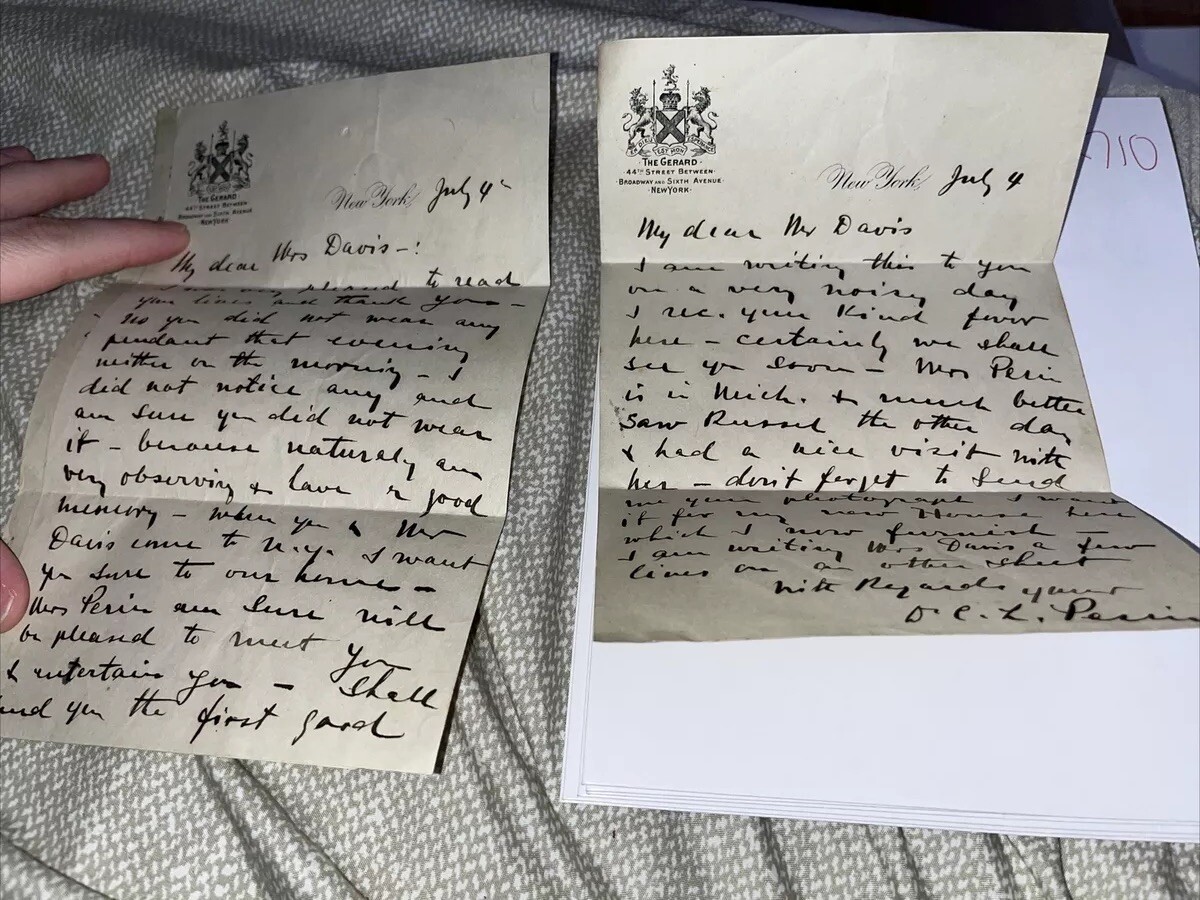 THE GERARD
44TH STREET BETWEEN
BROADWAY AND SIXTH AVENUE
NEW YORK
New York, July 4
My dear Mrs Davis-:
pleased to read
your lines and thank you -
no you did not wear any
pendant that evening
neither on the morning - I
did not notice any and
am sure you did not wear
it - because naturaly am
very observing & have a good
memory - when you & Mr
Davis come to N.Y. I want
you sure to our home -
Mrs Perin am sure will
be pleased to meet you
& entertain you - Shall
send you the first good
EST MON
THE GERARD
44TH STREET BETWEEN
BROADWAY AND SIXTH AVENUE
NEW YORK
New York, July 4
My dear Mr Davis
I am writing this to you
on a very noisy day
I rec. your Kind favor
here - certainly we shall
see you soon - Mrs Perin
is in Mich. & much better
Saw Russel the other day
& had a nice visit with
her - don't forget to Send
me your photograph I want
it for my new House here
which I now furnish -
I am writing Mrs Davis a few
lines on an other sheet
with Regards yours
Dr C. L. Perin
710